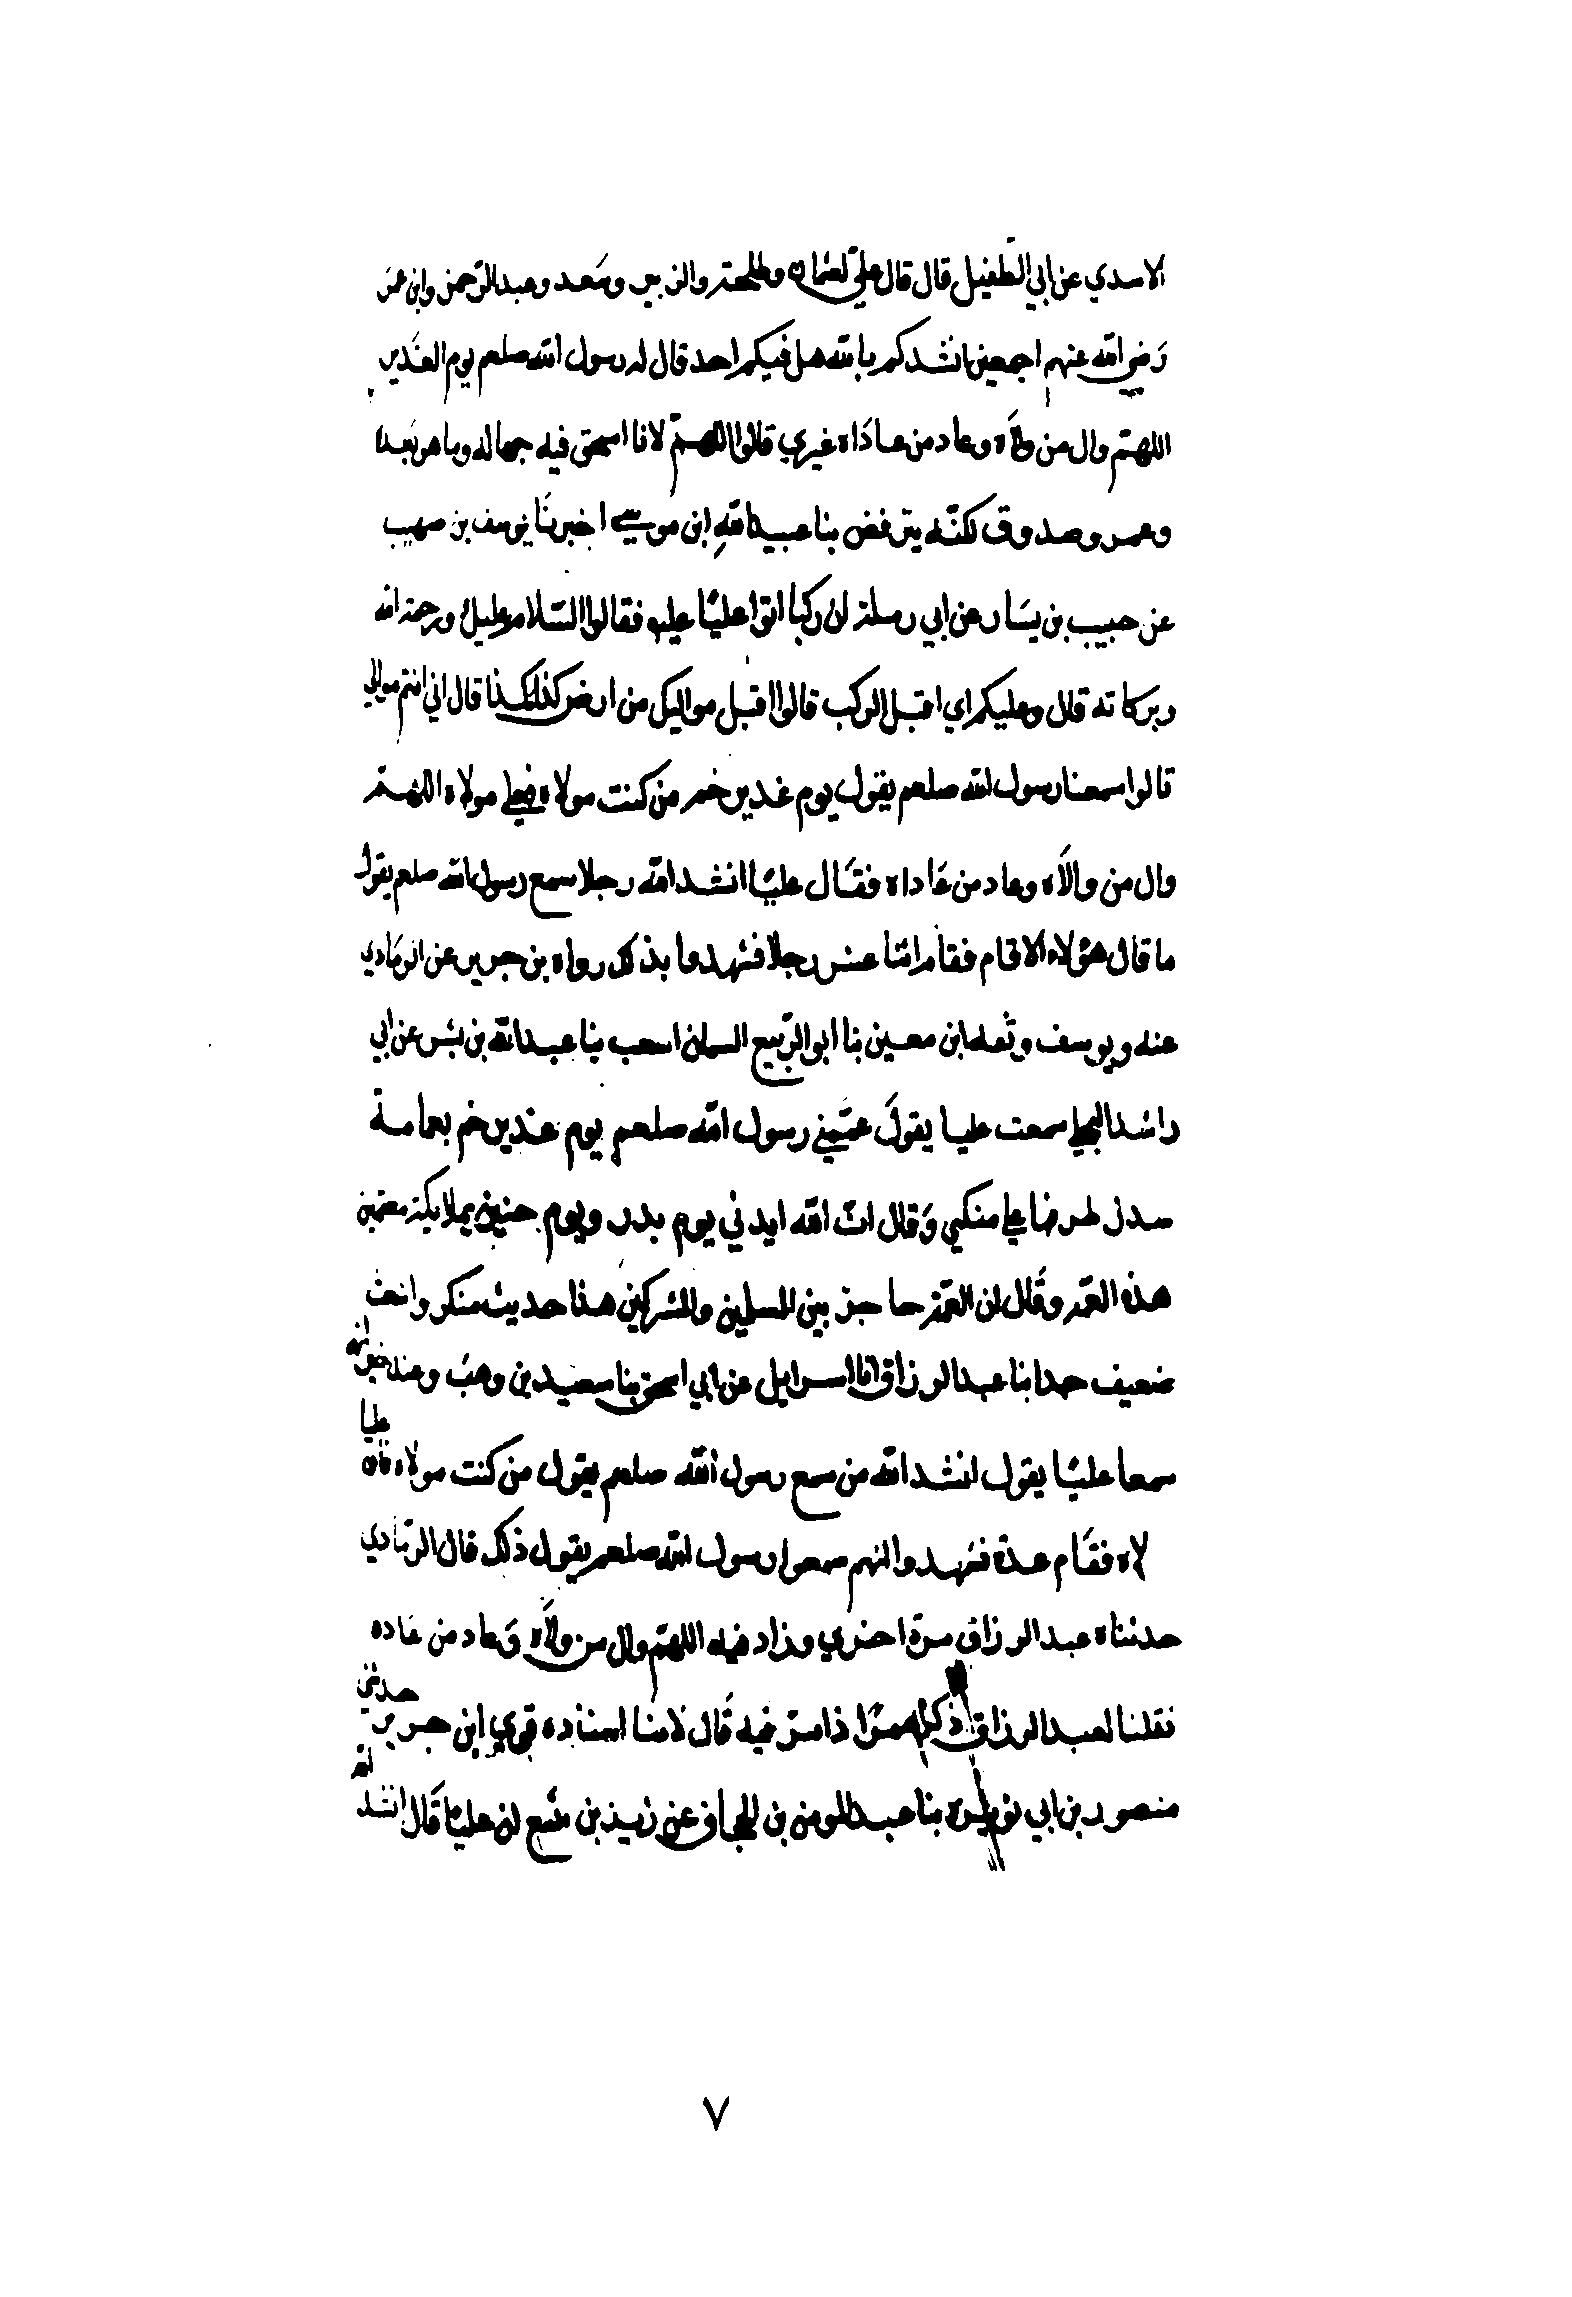 الاسدي عن ابي الطفيل قال قال علي لعثمان وطلحة والزبير وسعد وعبد الرحمن وابن عمر
رضي الله عنهم اجمعين انشدكم بالله هل فيكم احد قال له رسول الله صلعم يوم الغدير
اللهم وال من والاه وعاد من عاداه غيري قالوا اللهم لا نا اسحق فيه جهاله وما هو بعمدا
وعمر وصدوق لكنه يترفض بنا عبيد الله ابن موسى اخبرنا يوسف بن صهيب
عن حبيب بن يسار عن ابي رملة ان ركبا اتوا عليا عليه فقالوا السلام عليك ورحمة الله
وبركاته قال وعليكم اي اقبل الركب قالوا اقبل مواليك من ارض كذا كذا قال اني انتم موالي
قالوا سمعنا رسول الله صلعم يقول يوم غدير خم من كنت مولاه فعلي مولاه اللهم
وال من والاه وعاد من عاداه فقال عليا انشد الله رجلا سمع رسول الله صلعم يقول
ما قال هؤلاء الا قام فقام اثنا عشر رجلا فشهدوا بذلك رواه بن جرير عن الرمادي
عنه ويوسف وثقه ابن معين بنا ابو الربيع السمان اسعب بنا عبد الله بن بشر عن ابي
راشد سمعت عليا يقول عممني رسول الله صلعم يوم غدير خم بعمامة
سدل طرفها علي منكبي وقال ان الله ايدني يوم بدر ويوم حنين بملايكة معتمين
هذه العمة وقال ان العمة حاجز بين المسلمين والمشركين هذا حديث منكر واشعث
ضعيف حمدا بنا عبد الرزاق انا اسرايل عن ابي اسحق بنا سعيد بن وهب وعبد خير انهما
سمعا عليا يقول انشد الله من سمع رسول الله صلعم يقول من كنت مولاه فان عليا
لاه فقام عدة فشهدوا انهم سمعوا رسول الله صلعم يقول ذلك قال الرمادي
حدثناه عبد الرزاق مرة اخري وزاد فيه اللهم وال من والاه وعاد من عاده
فقلنا لعبد الرزاق ذا مرة فيه قال لا منا اسناده قوي ابن جرير حدثني
منصور بن ابي نويرة بنا عبد المومن بن عن زيد بن يثيع ان عليا قال انشد الله
٧